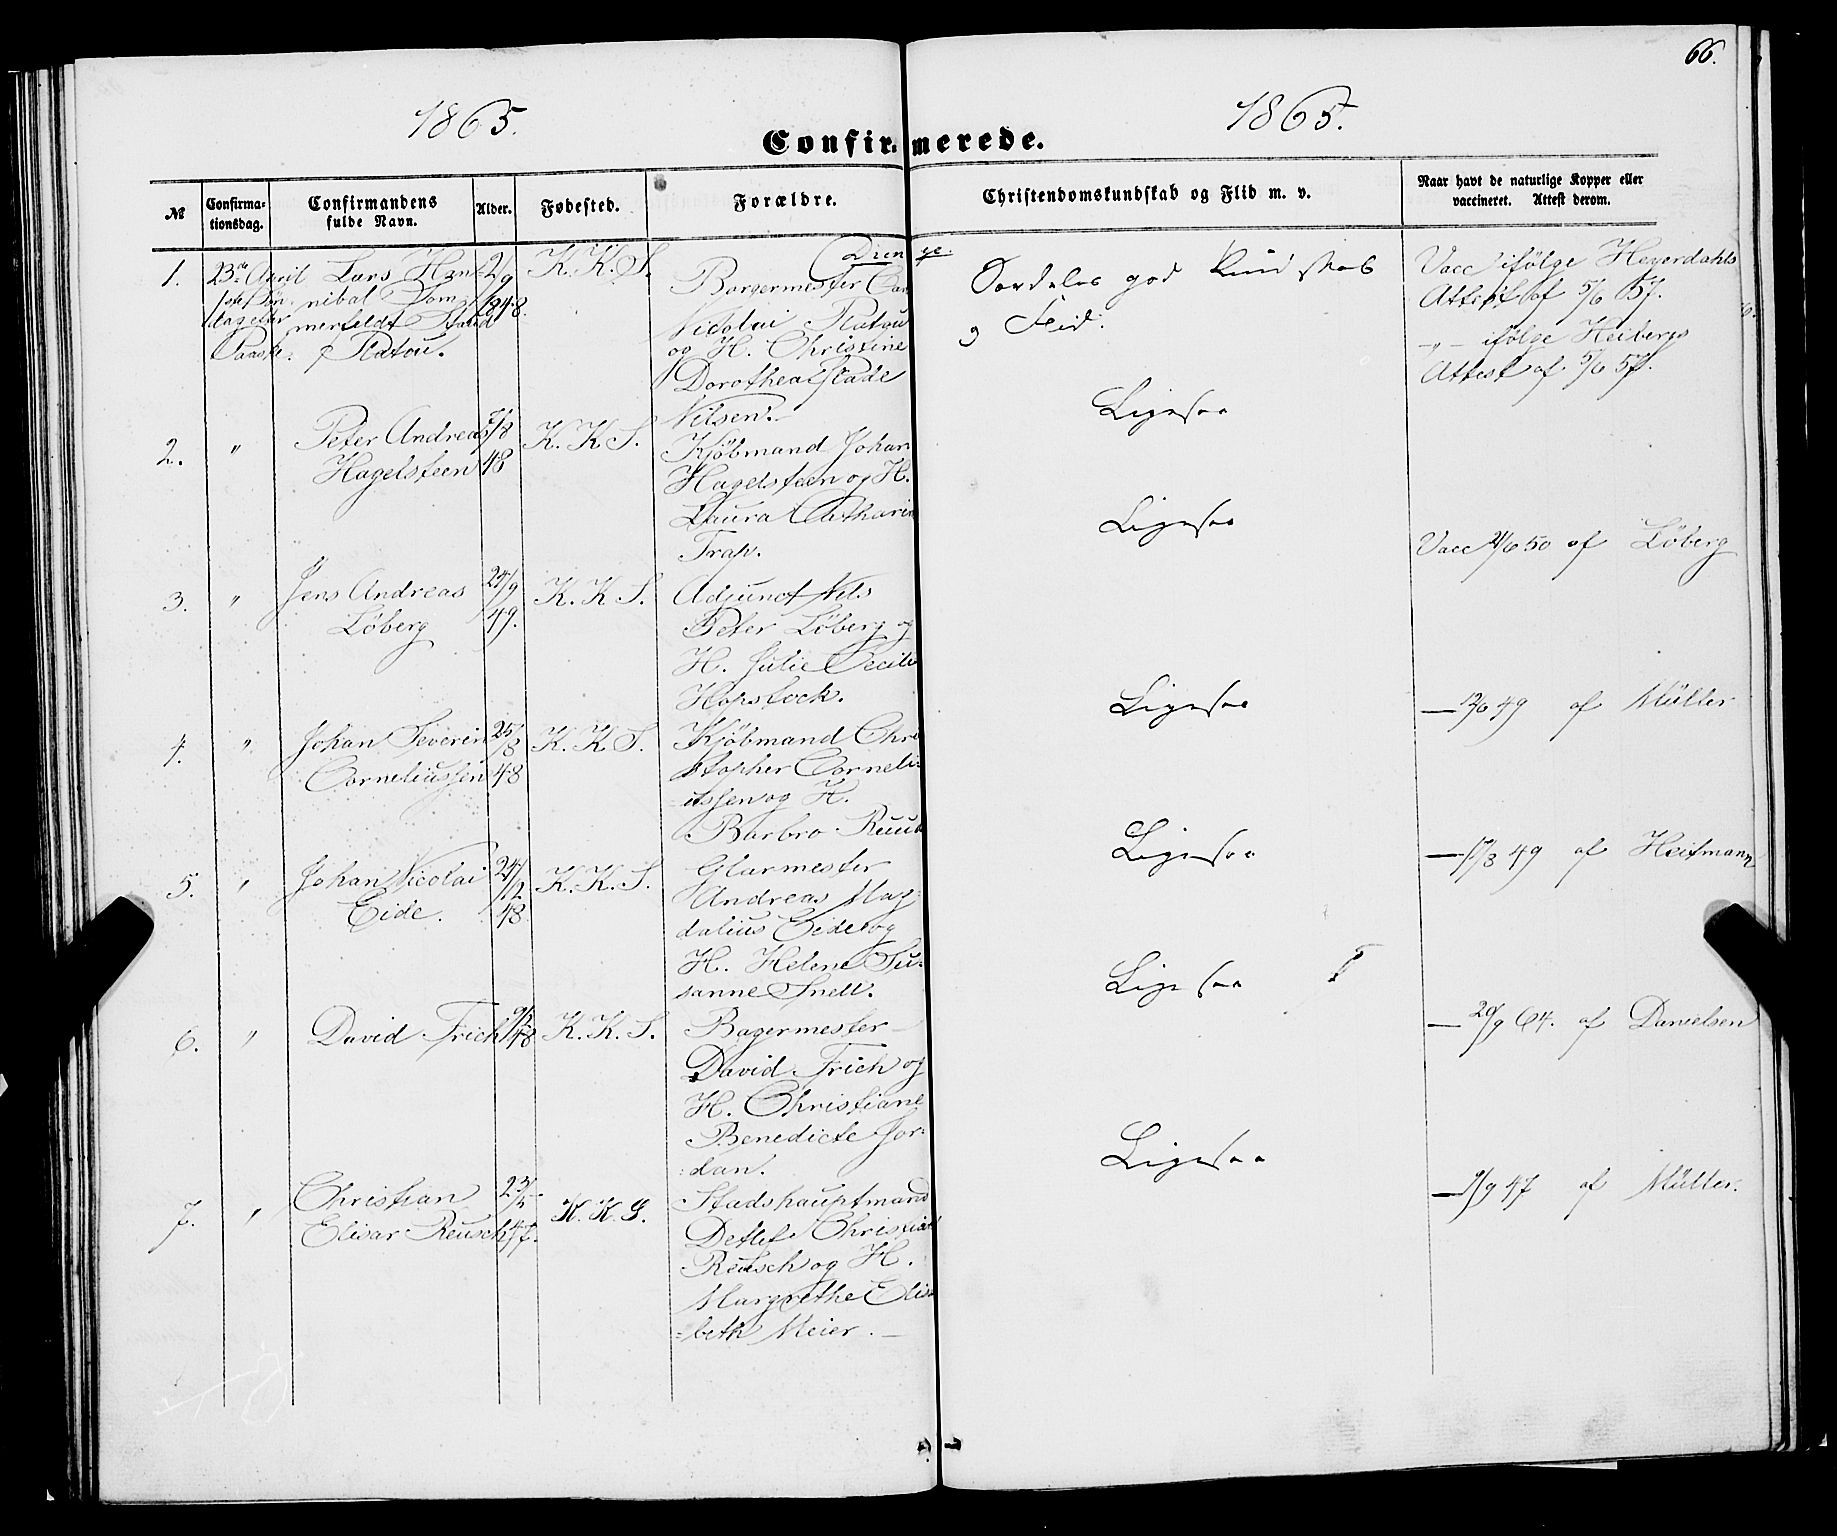 66.
1865.
1865.
Confirmerede.
№
Confirma-
tionsdag.
Confirmandens
fulde Navn.
Alder.
Fødested.
Forældre.
Christendomskundskab og Flid m. v.
Naar havt de naturlige Kopper eller
vaccineret. Attest derom.
Drenge.
1.
23de April
1ste Søn
dag efter
Paaske.
Lars Han-
nibal Som
merfeldt Stoud
Platou.
2/9
1848.
K. K. S.
Borgermester Carl
Nicolai Platou
og H. Christine
Dorothea Stade
Nilsen.
Særdeles god Kundskab
og Flid.
Vacc ifølge Heyerdahls
Attest af 5/6 57.
2.
"
Peter Andreas
Hagelsteen
7/8
48
K. K. S.
Kjöbmand Johan
Hagelsteen og H.
Laura Catharin
Trap.
Ligesaa
-"- ifølge Heibergs
Attest af 5/6 57.
3.
"
Jens Andreas
Löberg
24/9
49.
K. K. S.
Adjunct Nils
Peter Löberg og
H. Julie Cecilie
Hopstock.
Ligesaa
Vacc 21/6 50 af Löberg
4.
"
Johan Severin
Corneliussen
25/8
48
K. K. S.
Kjöbmand Chri
stopher Corneli-
ussen og H.
Barbro Ruud
Ligesaa
— 12/6 49 af Müller
5.
"
Johan Nicolai
Eide.
24/12
48
K. K. S.
Glarmester
Andreas Mag-
dalius Eide og
H. Helene Su-
sanne Snell.
Ligesaa
— 17/8 49 af Heitmann
6.
"
David Frich
9/2
48
K. K. S.
Bagermester
David Frich og
H. Christiane
Benedicte Jor-
dan.
Ligesaa
— 20/9 64. af Danielsen
7.
"
Christian
Elisar Reusch
23/5
47.
K. K. S.
Stadshauptmand
Detlef Christian
Reusch og H.
Margrethe Elisa
beth Meier.
Ligesaa
— 9/9 47 af Müller.